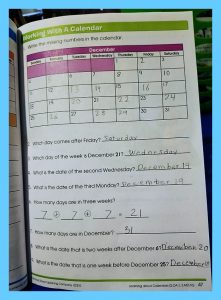 Working With A Calendar
Write the missing numbers in the calendar.
December
Sunday Monday Tuesday Wednesday Thursday Friday Saturday
2
7 8 9 10
13 16 17
20 22 24
26 28 30 31
Which day comes after Friday? Saturday
Which day of the week is December 21? Wednesday
What is the date of the second Wednesday? December 14
What is the date of the third Monday? December 19
How many days are in three weeks?
7 + 7 + 7 = 21
How many days are in December? 31
What is the date that is two weeks after December 6? December 20
What is the date that is one week before December 25? December